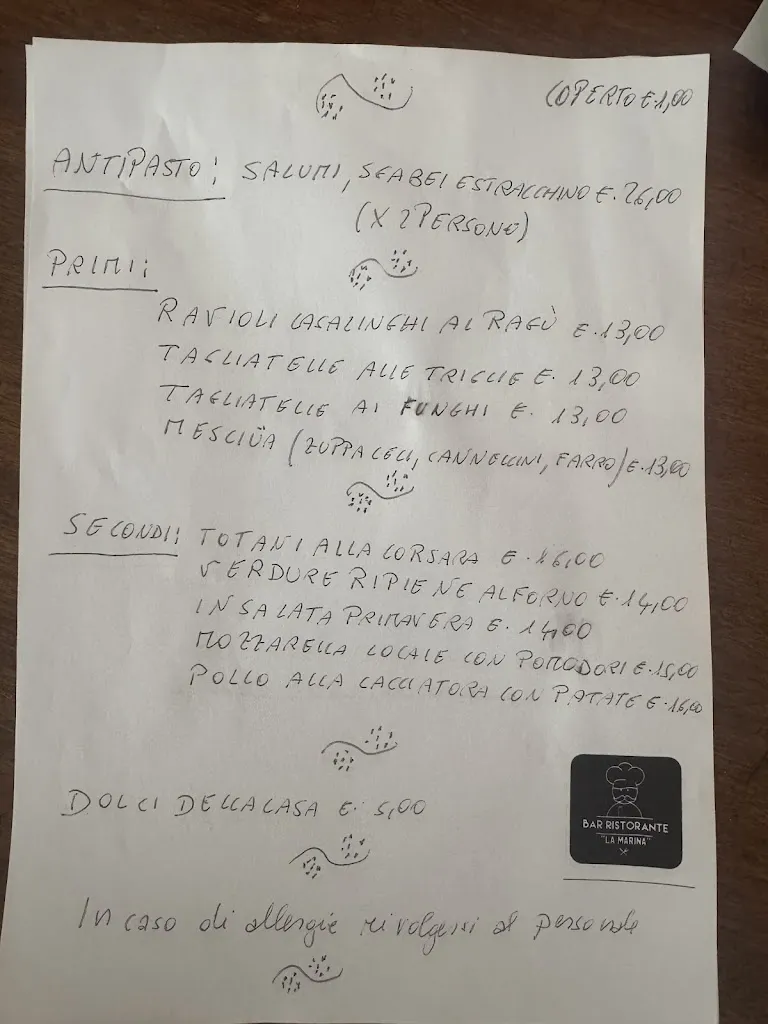 COPERTO €.1,00
ANTIPASTO: SALUMI, SGABEI E STRACCHINO €.26,00
(X 2 PERSONE)
PRIMI:
RAVIOLI CASALINGHI AL RAGÙ €.13,00
TAGLIATELLE ALLE TRIGLIE €. 13,00
TAGLIATELLE AI FUNGHI €. 13,00
MESCIÜA (ZUPPA CECI, CANNELLINI, FARRO) €.13,00
SECONDI: TOTANI ALLA CORSARA €.16,00
VERDURE RIPIENE AL FORNO €.14,00
INSALATA PRIMAVERA €. 14,00
MOZZARELLA LOCALE CON POMODORI €.15,00
POLLO ALLA CACCIATORA CON PATATE €.16,00
DOLCI DELLA CASA €. 5,00
BAR RISTORANTE
"LA MARINA"
In caso di allergie rivolgersi al personale